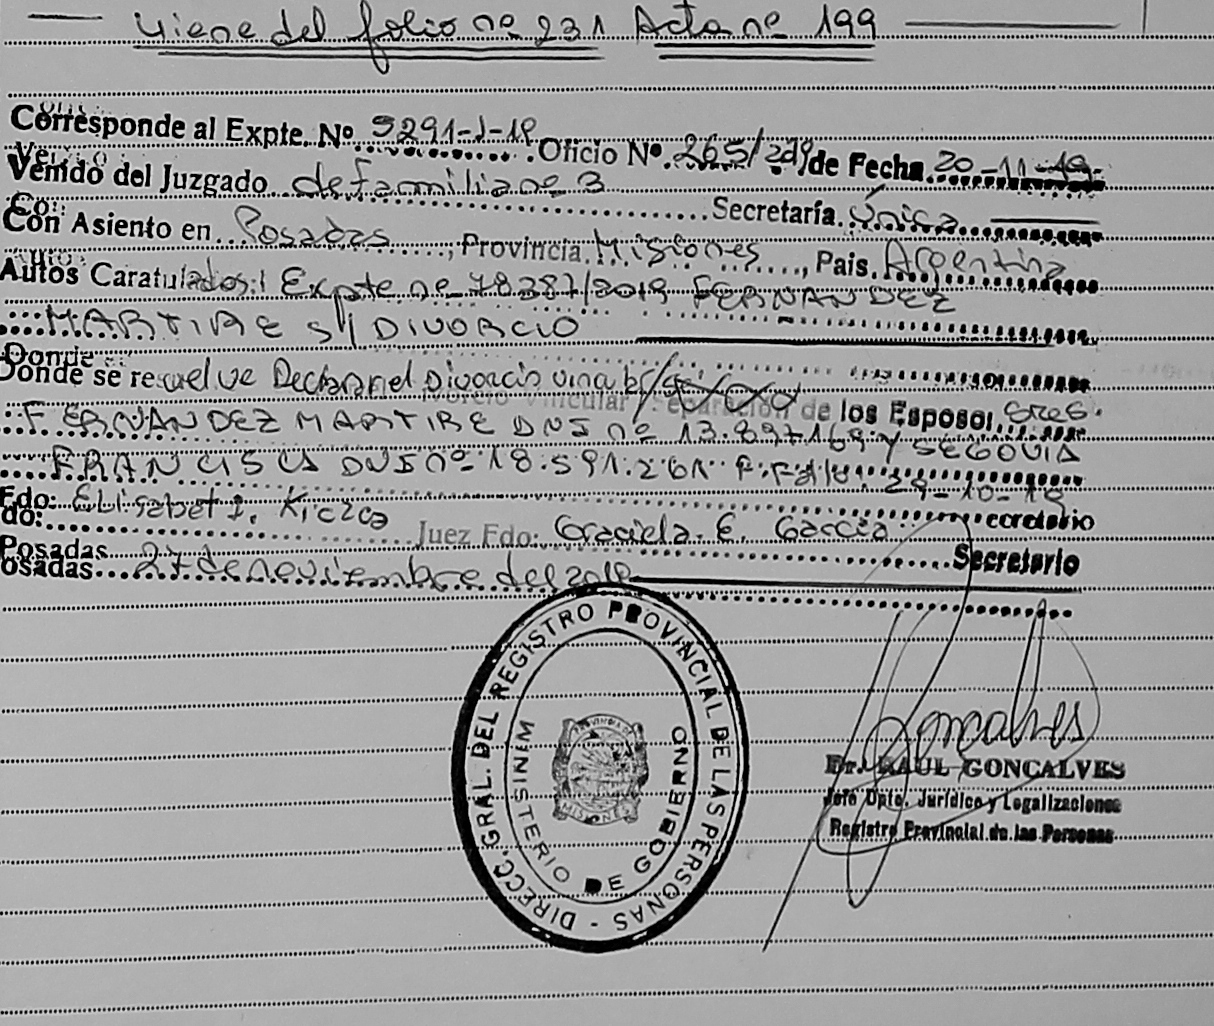 Viene del folio nº 231 Acta nº 199
Corresponde al Expte. Nº 9291-J-19 Oficio Nº 265/2019 de Fecha 20-11-19.
Venido del Juzgado de Familia nº 3 Secretaría Única
Con Asiento en Posadas, Provincia Misiones, Pais. Argentina
Autos Caratulados: Expte nº 78387/2019 FERNANDEZ
MARTIRE s/ DIVORCIO
Donde se resuelve Declarar el Divorcio Vincular de los Esposos Sres.
FERNANDEZ MARTIRE DNI nº 13.897.169 Y SEGOVIA
FRANCISCA DNI nº 18.591.261. F. Fallo: 29-10-19
Fdo: Elisabet I. Kiczca Juez Fdo: Graciela. E. Garcia Secretario
Posadas 27 de noviembre del 2019
DIRECC. GRAL. DEL REGISTRO PROVINCIAL DE LAS PERSONAS -
MINISTERIO DE GOBIERNO
PROVINCIA DE
MISIONES
Goncalves
Dr. RAUL GONCALVES
Jefe Dpto. Jurídico y Legalizaciones
Registro Provincial de las Personas